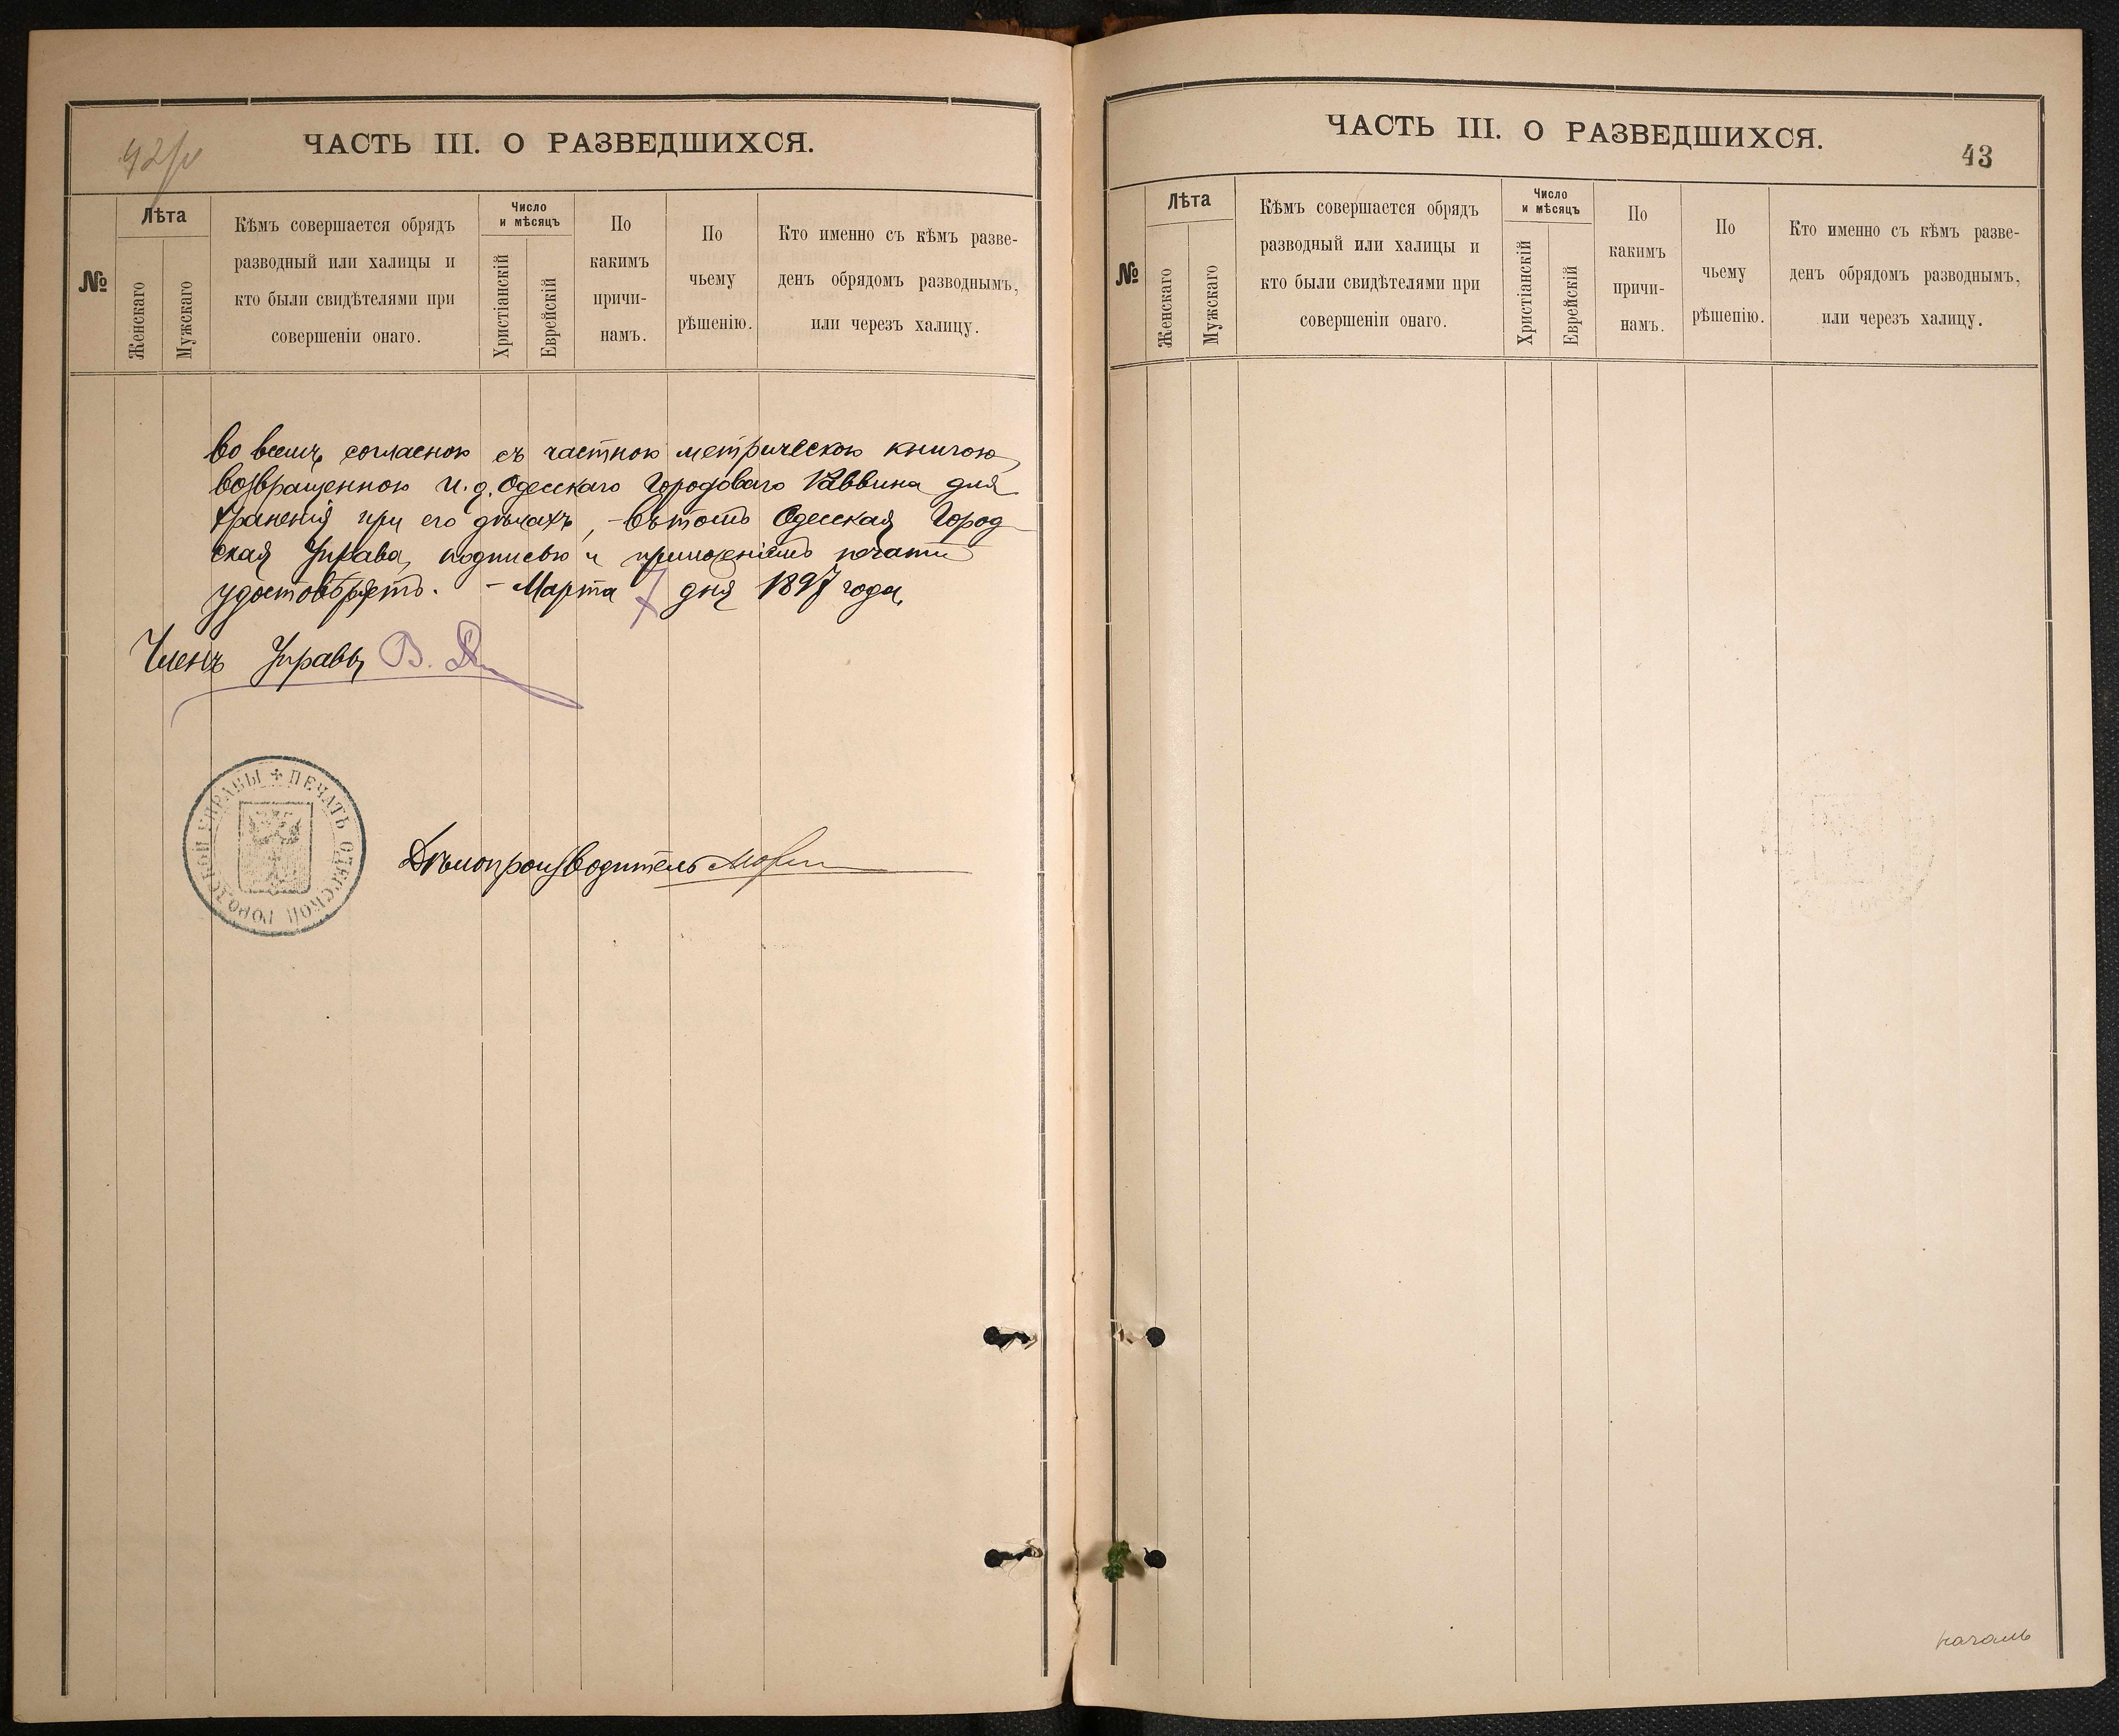 42/об
ЧАСТЬ III. О РАЗВЕДШИХСЯ.
№
Лѣта
Женскаго
Мужскаго
Кѣмъ совершается обрядъ
разводный или халицы и
кто были свидѣтелями при
совершеніи онаго.
Число
и мѣсяцъ
Христіанскій
Еврейскій
По
какимъ
причи-
намъ.
По
чьему
рѣшенію.
Кто именно съ кѣмъ разве-
денъ обрядомъ разводнымъ,
или черезъ халицу.
во всемъ согласною съ частною метрическою книгою,
возвращенною И. д. Одесскаго Городоваго Раввина для
храненія при его дѣлахъ, – въ томъ Одесская Город
ская Управа, подписью и приложеніемъ печати
удостовѣряетъ. – Марта 7 дня 1897 года,
Членъ Управы В.
ПЕЧАТЬ ОДЕССКОЙ ГОРОДСКОЙ УПРАВЫ
Дѣлопроизводитель
ЧАСТЬ III. О РАЗВЕДШИХСЯ.
43
№
Лѣта
Женскаго
Мужскаго
Кѣмъ совершается обрядъ
разводный или халицы и
кто были свидѣтелями при
совершеніи онаго.
Число
и мѣсяцъ
Христіанскій
Еврейскій
По
какимъ
причи-
намъ.
По
чьему
рѣшенію.
Кто именно съ кѣмъ разве-
денъ обрядомъ разводнымъ,
или черезъ халицу.